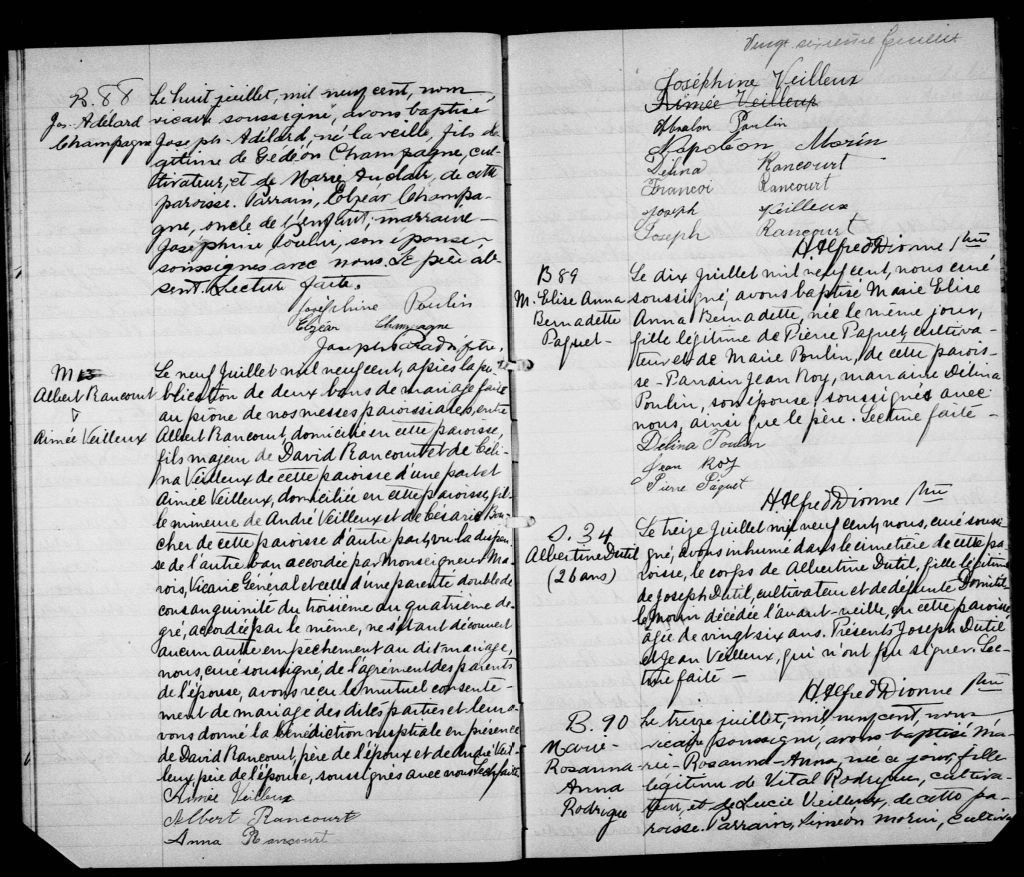 B. 88
Jos. Adélard
Champagne
Le huit juillet, mil neuf cent, nous
vicaire soussigné, avons baptisé
Joseph-Adélard, né la veille, fils lé-
gitime de Gédéon Champagne, cul-
tivateur, et de Marie Auclair, de cette
paroisse. Parrain, Elzéar Champa-
gne, oncle de l'enfant; marraine
Joséphine Poulin, son épouse,
soussignés avec nous. Le père ab-
sent. Lecture faite.
Joséphine Poulin
Elzéar Champagne
Joseph
M
Albert Rancourt
&
Aimée Veilleux
Le neuf Juillet mil neuf cent, après la pu-
blication de deux bans de mariage faite
au prône de nos messes paroissiales, entre
Albert Rancourt, domicilié en cette paroisse,
fils majeur de David Rancourt et de Céli-
na Veilleux de cette paroisse d'une part et
Aimée Veilleux, domiciliée en cette paroisse, fil-
le mineure de André Veilleux et de Césarie Bou-
cher de cette paroisse d'autre part, vu la dispen-
se de l'autre ban accordée par Monseigneur Ma-
rois, Vicaire Général et celle d'une parenté double de
consanguinité du troisième au quatrième de-
gré, accordée par le même, ne s'étant découvert
aucun autre empêchement au dit mariage,
nous, curé soussigné, de l'agrément des parents
de l'épouse, avons reçu le mutuel consente-
ment de mariage des dites parties et leur a-
vons donné la bénédiction nuptiale en présence
de David Rancourt, père de l'époux et de André Veil-
leux père de l'épouse, soussignés avec nous. Lect. faite
Aimée Veilleux
Albert Rancourt
Anna Rancourt
Vingt sixième feuillet
Joséphine Veilleux
Aimée Veilleux
Absalon Poulin
Napoléon Morin
Délina Rancourt
Francoi Rancourt
Joseph Veilleux
Joseph Rancourt
H. Alfred Dionne Ptre
B 89
M. Elise Anna
Bernadette
Paquet-
Le dix Juillet mil neuf cent, nous curé
soussigné, avons baptisé Marie Elise
Anna Bernadette, née le même jour,
fille légitime de Pierre Paquet, cultiva-
teur et de Marie Poulin, de cette parois-
se - Parrain Jean Roy, marraine Délina
Poulin, son épouse, soussignés avec
nous, ainsi que le père. Lecture faite -
Délina Poulin
Jean Roy
Pierre Paquet
H Alfred Dionne Ptre
S. 34
Albertine Dutil
(26 ans)
Le treize Juillet mil neuf cent, nous, curé soussi-
gné, avons inhumé dans le cimetière de cette pa-
roisse, le corps de Albertine Dutil, fille légitime
de Joseph Dutil, cultivateur et de défunte Domitil-
le Morin décédée l'avant-veille, en cette paroisse
âgée de vingt six ans. Présents Joseph Dutil
et Jean Veilleux, qui n'ont pu signer. Lec-
ture faite -
H. Alfred Dionne Ptre
B. 90
Marie-
Rosanna-
Anna
Rodrigue
Le treize juillet, mil neuf cent, nous
vicaire soussigné, avons baptisé Ma-
rie-Rosanna-Anna, née ce jour, fille
légitime de Vital Rodrigue, cultiva-
teur, et de Lucie Veilleux, de cette pa-
roisse. Parrain, Siméon Morin, cultiva